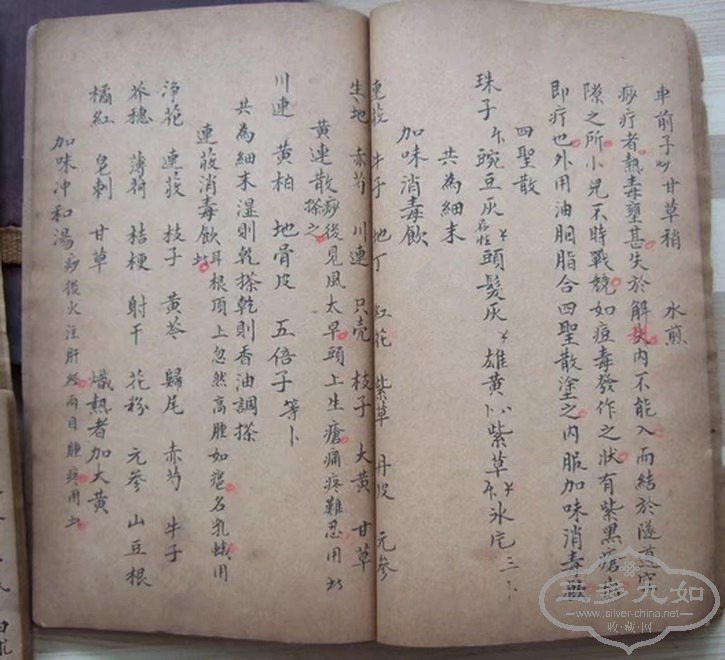 車前子 甘草稍 水煎
痧疔者熱毒壅甚失於解 内不能入而結於隧
隙之所小兒不時戰競如痘毒發作之状有紫黑瘡
即疔也外用油胭脂合四聖散塗之内服加味消毒
四聖散
珠子 豌豆灰存性 頭髮灰 雄黄 紫草 氷 三
共為細末
加味消毒飲
連莪 牛子 地丁 紅花 紫草 丹皮 元參
生地 赤芍 川連 只壳 枝子 大黄 甘草
黄連散 痧後見風太早頭上生瘡痛疼難忍用此
搽之
川連 黄柏 地骨皮 五倍子 等卜
共為細末湿則乾搽乾則香油調搽
連莪消毒飲 耳根頂上忽然高腫如疤名乳蛾用
此
净花 連莪 枝子 黄芩 歸尾 赤芍 牛子
芥穗 薄荷 桔梗 射干 花粉 元參 山豆根
橘紅 皂刺 甘草 熾熱者加大黄
加味冲和湯 痧後火注肝經両目腫疼用此
www.silver-china.net
收·藏·网